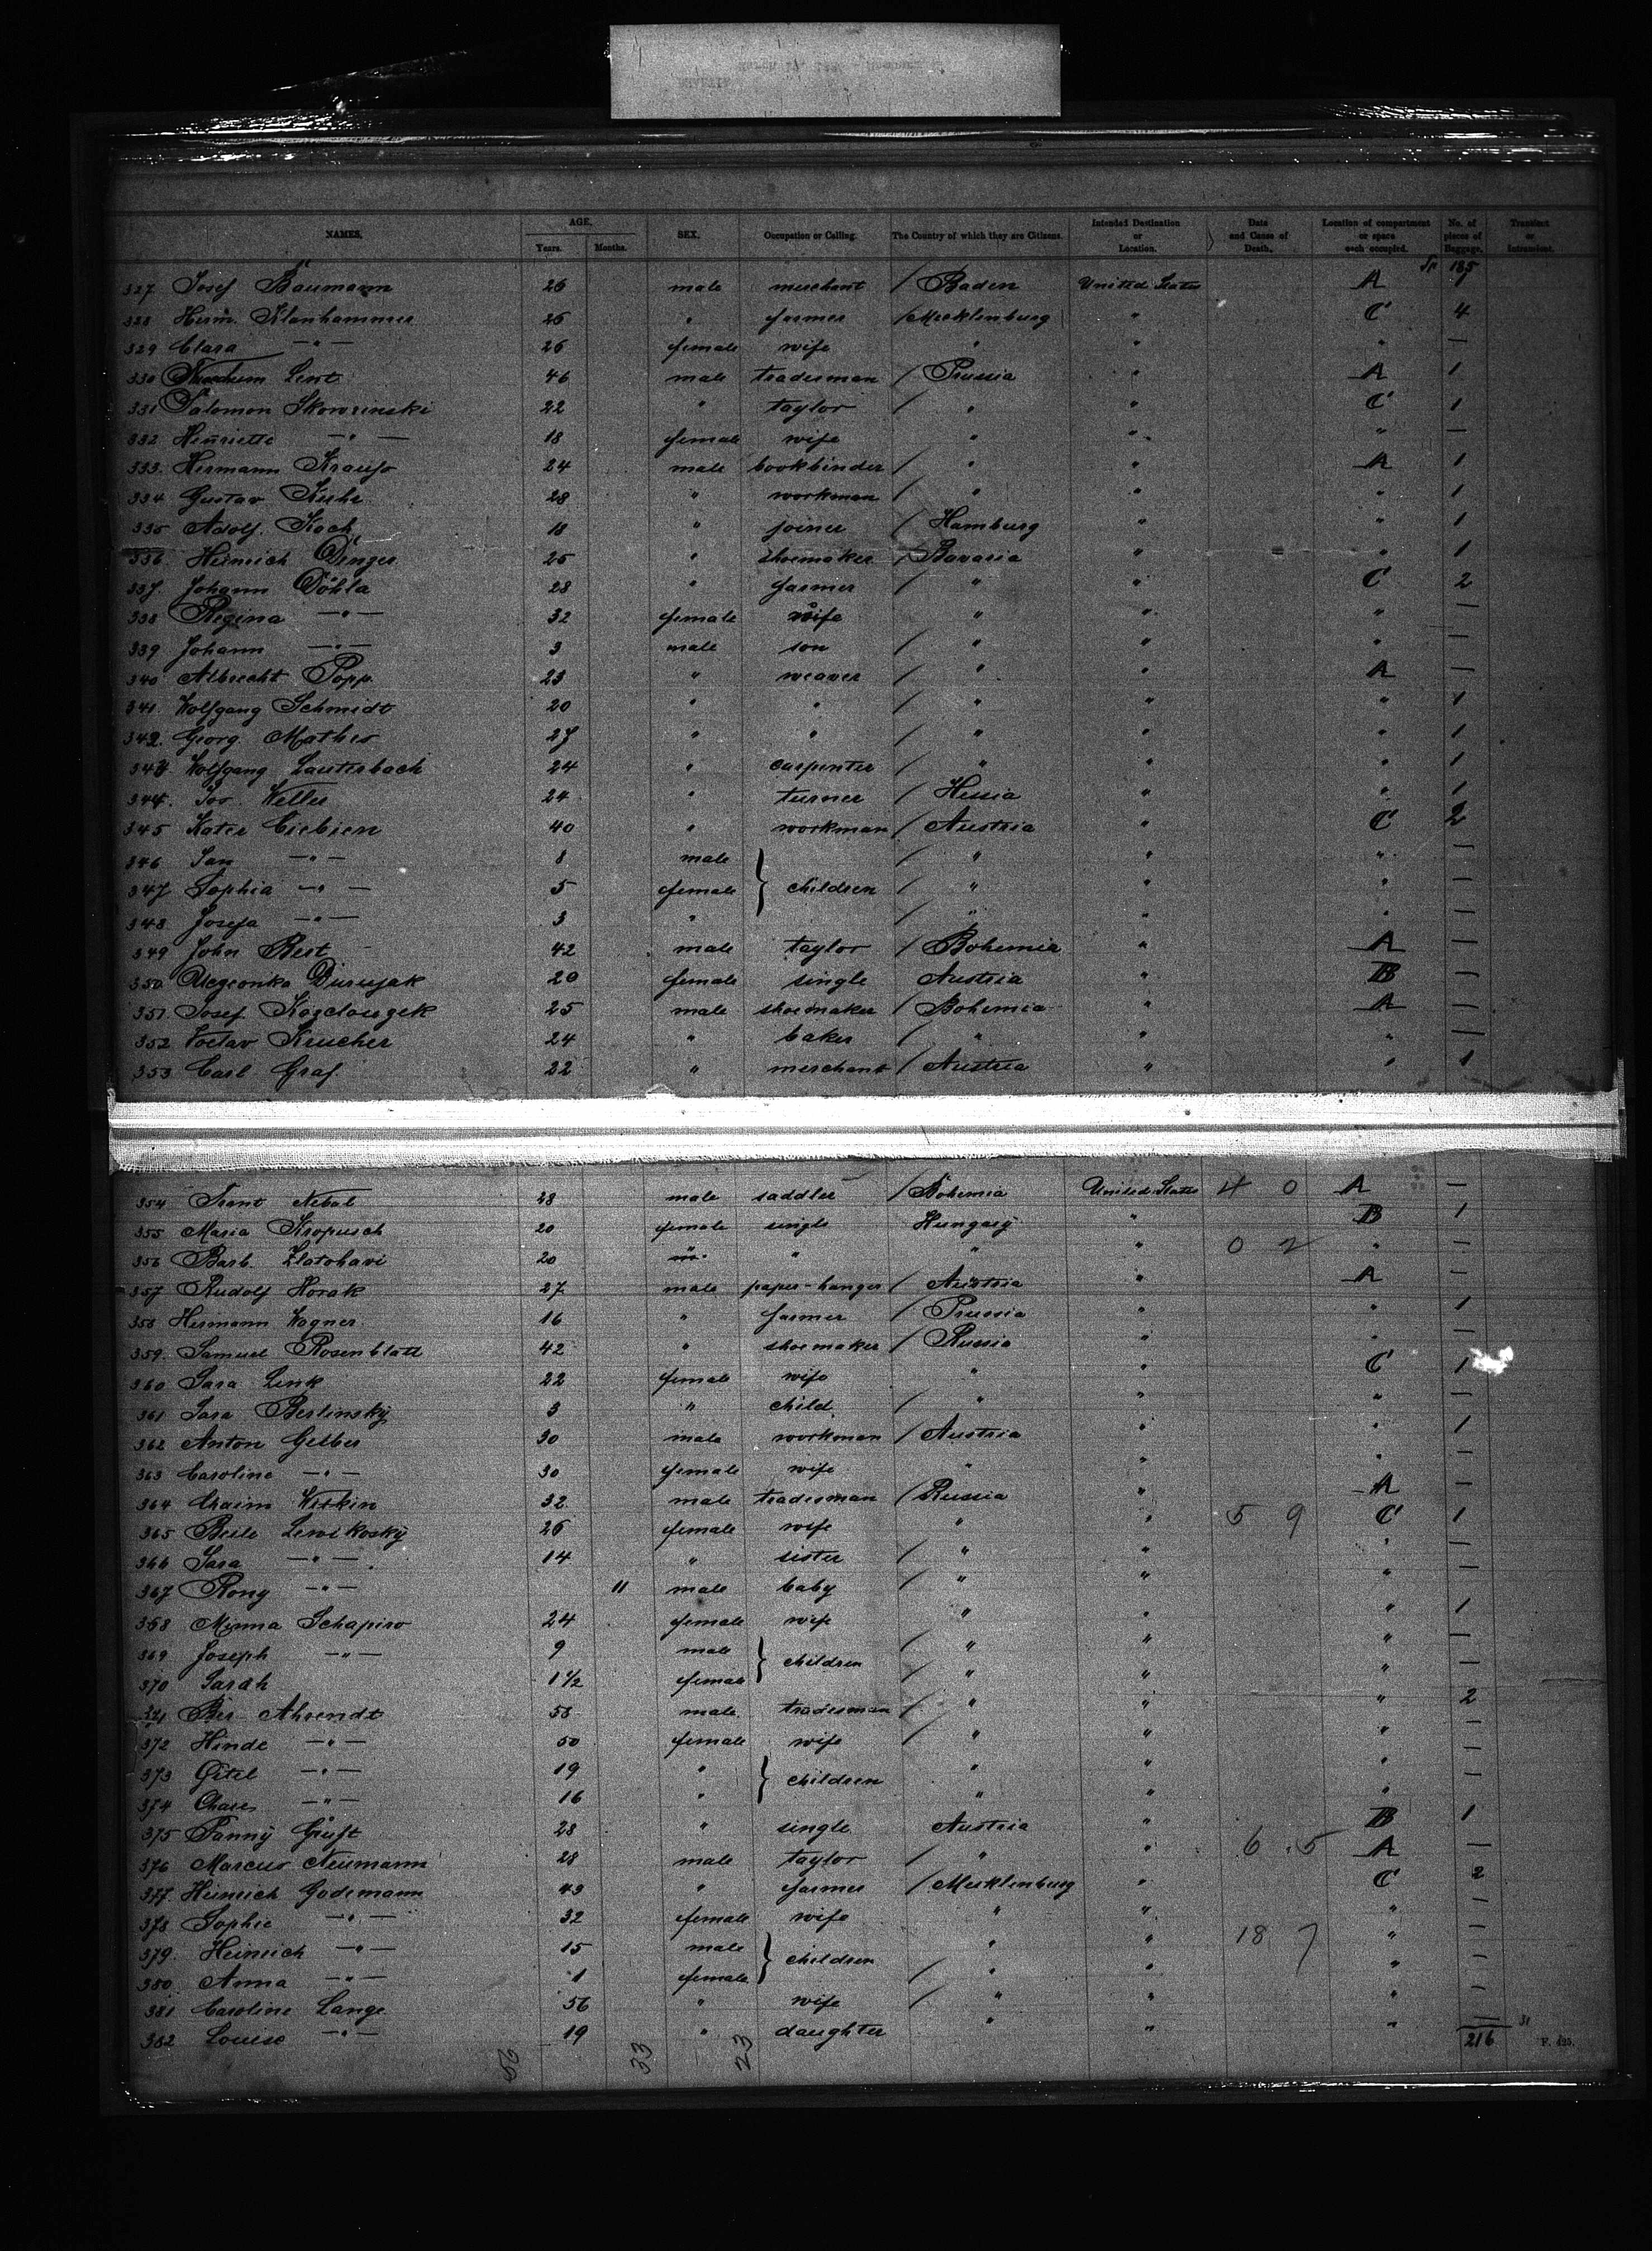 NAMES. AGE. SEX. Occupation or Calling. The Country of which they are Citizens. Intended Destination or Location. Date and Cause of Death. Location of compartment or space each occupied. No. of pieces of Baggage. Transient or Intransient.
Years. Months.
185
327 Josef Baumann 26 male merchant / Baden United States A 1
328 Herm. Klanhammer 26 " farmer / Mecklenburg " C 4
329 Clara —"— 26 female wife " " " —
330 Lent 46 male tradesman / Prussia " A 1
331 Salomon Skowrinski 22 " taylor / " " C 1
332 Henriette —"— 18 female wife " " " —
333. Hermann Krauss 24 male bookbinder / " " A 1
334 Gustav 28 " workman / " " " 1
335 Adolf. Koch 18 " joiner / Hamburg " " 1
336. Heinrich Dinger 25 " shoemaker / Bavaria " " 1
337. Johann Döhla 28 " farmer / " " C 2
338 Regina —"— 32 female wife " " " —
339 Johann —"— 3 male son / " " " —
340 Albrecht Popp. 23 " weaver / " " A —
341. Wolfgang Schmidt 20 " " / " " " 1
342. Georg Mathes 27 " " / " " " 1
343. Wolfgang Lauterbach 24 " carpenter / " " " 1
344. Jos. Weller 24 " turner / Hessia " " 1
345 Kater Ciebien 40 " workman / Austria " C 2
346 Jan —"— 8 male / " " " —
347 Sophia —"— 5 female } children / " " " —
348. Josefa —"— 3 " / " " " —
349 John Best 42 male taylor / Bohemia " A —
350. 20 female single Austria " B —
351. Josef 25 male shoemaker / Bohemia " A —
352 Krucher 24 " baker / " " " —
353 Carl Graf. 22 " merchant / Austria " " 1
354 Nebal 28 male saddler / Bohemia United States 4 0 A —
355 Maria Kropusch 20 female single Hungary " B 1
356 Barb. Zlatohavi 20 " " " " 0 2 " —
357 Rudolf Horak 27 male paper-hanger / Austria " A —
358 Hermann Wagner. 16 " farmer / Prussia " " 1
359. Samuel Rosenblatt 42 " shoemaker / Russia " " —
360 Sara Lenk 22 female wife " " C 1
361 Sara Berlinsky 3 " child. / " " " —
362 Anton Gelber 30 male workman / Austria " " 1
363 Caroline —"— 30 female wife " " " —
364 Chaim Wiskin 32 male tradesman / Russia " A —
365 Beile Lewikosky 26 female wife " " 5 9 C 1
366 Sara —"— 14 " sister / " " " —
367 Rony —"— 11 male baby / " " " —
368 Minna Schapiro 24 female wife " " " 1
369 Joseph —"— 9 male } children / " " " —
370 Sarah 1 1/2 female / " " " —
371 Ber Ahrendt 58 male tradesman / " " " 2
372 Hinde —"— 50 female wife / " " " —
373 Gitel —"— 19 " } children " " " —
374 —"— 16 " " " "
375 Fanny 28 " single Austria " B 1
376 Marcus Neumann 28 male taylor / " " 6 5 A —
377. Heinrich Godemann 43 " farmer / Mecklenburg " C 2
378 Sophie —"— 32 female wife " " " —
379. Heinrich —"— 15 male } children " " 18 7 " —
380. Anna —"— 1 female / " " " —
381 Caroline Lange 56 " wife / " " " —
382 Louise —"— 19 " daughter " " " —
31
216
F. 495.
33 23